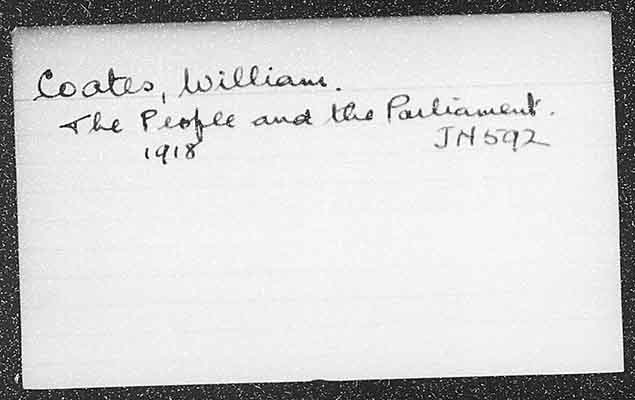 Coates, William.
The People and the Parliament.
1918 JN592